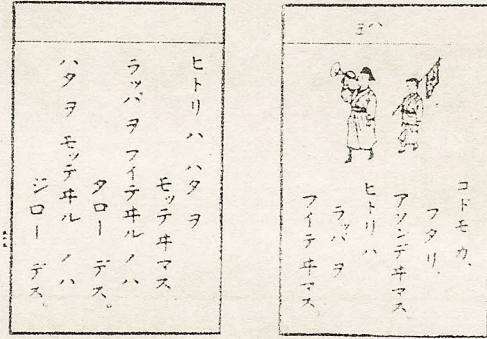 コドモカ、
フタリ、
アソンデヰマス
ヒトリハ
ラッパ ヲ
フイテヰマス
ヒトリ ハ ハタ ヲ
モッテヰマス
ラッパ ヲ フイテヰル ノ ハ
タロー デス。
ハタ ヲ モッテヰル ノ ハ
ジロー デス。